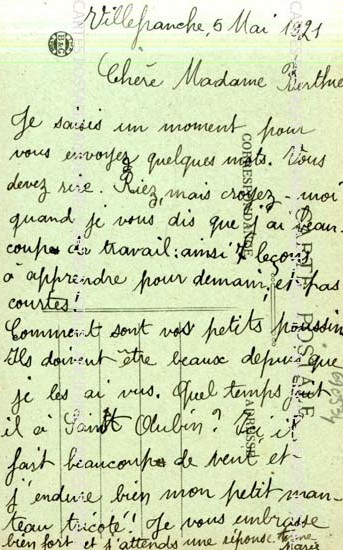 Villefranche, 5 Mai 1921
Chère Madame Berthe
Je saisis un moment pour
vous envoyer quelques mots. Vous
devez rire. Riez, mais croyez-moi
quand je vous dis que j'ai beau-
coup de travail: ainsi 7 leçons
à apprendre pour demain, et pas
courtes!
Comment sont vos petits poussins
Ils doivent être beaux depuis que
je les ai vus. Quel temps fait
il à Saint Olubin? Ici il
fait beaucoup de vent et
j'endure bien mon petit man-
teau tricoté! Je vous embrasse
bien fort et j'attends une réponse
Marie
CARTE POSTALE
CORRESPONDANCE
ADRESSE
B&G